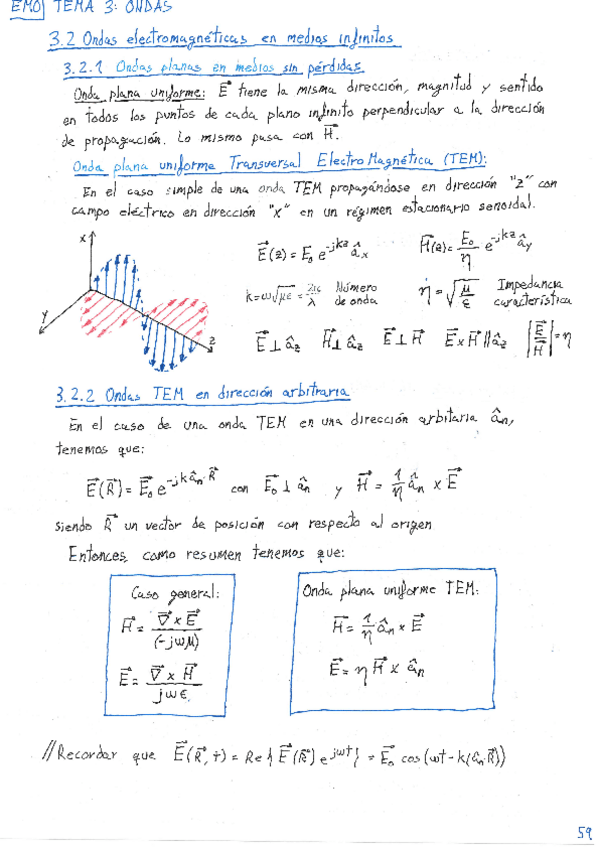 EMO TEMA 3: ONDAS
3.2 Ondas electromagnéticas en medios infinitos
3.2.1 Ondas planas en medios sin pérdidas
Onda plana uniforme: E⃗ tiene la misma dirección, magnitud y sentido
en todos los puntos de cada plano infinito perpendicular a la dirección
de propagación. Lo mismo pasa con H⃗.
Onda plana uniforme Transversal ElectroMagnética (TEM):
En el caso simple de una onda TEM propagándose en dirección "z" con
campo eléctrico en dirección "x" en un régimen estacionario senoidal.
x
y
z
E⃗(z) = E₀ e^(-jkz) â_x    H⃗(z) = E₀/η e^(-jkz) â_y
k = ω√(με) = 2π/λ Número de onda    η = √(μ/ε) Impedancia característica
E⃗ ⊥ â_z    H⃗ ⊥ â_z    E⃗ ⊥ H⃗    E⃗ x H⃗ // â_z    |E⃗/H⃗| = η
3.2.2 Ondas TEM en dirección arbitraria
En el caso de una onda TEM en una dirección arbitaria â_n,
tenemos que:
E⃗(R⃗) = E⃗₀ e^(-jk â_n·R⃗) con E⃗₀ ⊥ â_n y H⃗ = 1/η â_n x E⃗
siendo R⃗ un vector de posición con respecto al origen
Entonces, como resumen tenemos que:
Caso general:
H⃗ = ∇⃗ x E⃗ / (-jωμ)
E⃗ = ∇⃗ x H⃗ / jωε
Onda plana uniforme TEM:
H⃗ = 1/η â_n x E⃗
E⃗ = η H⃗ x â_n
//Recordar que E⃗(R⃗, t) = Re{E⃗(R⃗) e^(jωt)} = E⃗₀ cos(ωt - k(â_n·R⃗))
59